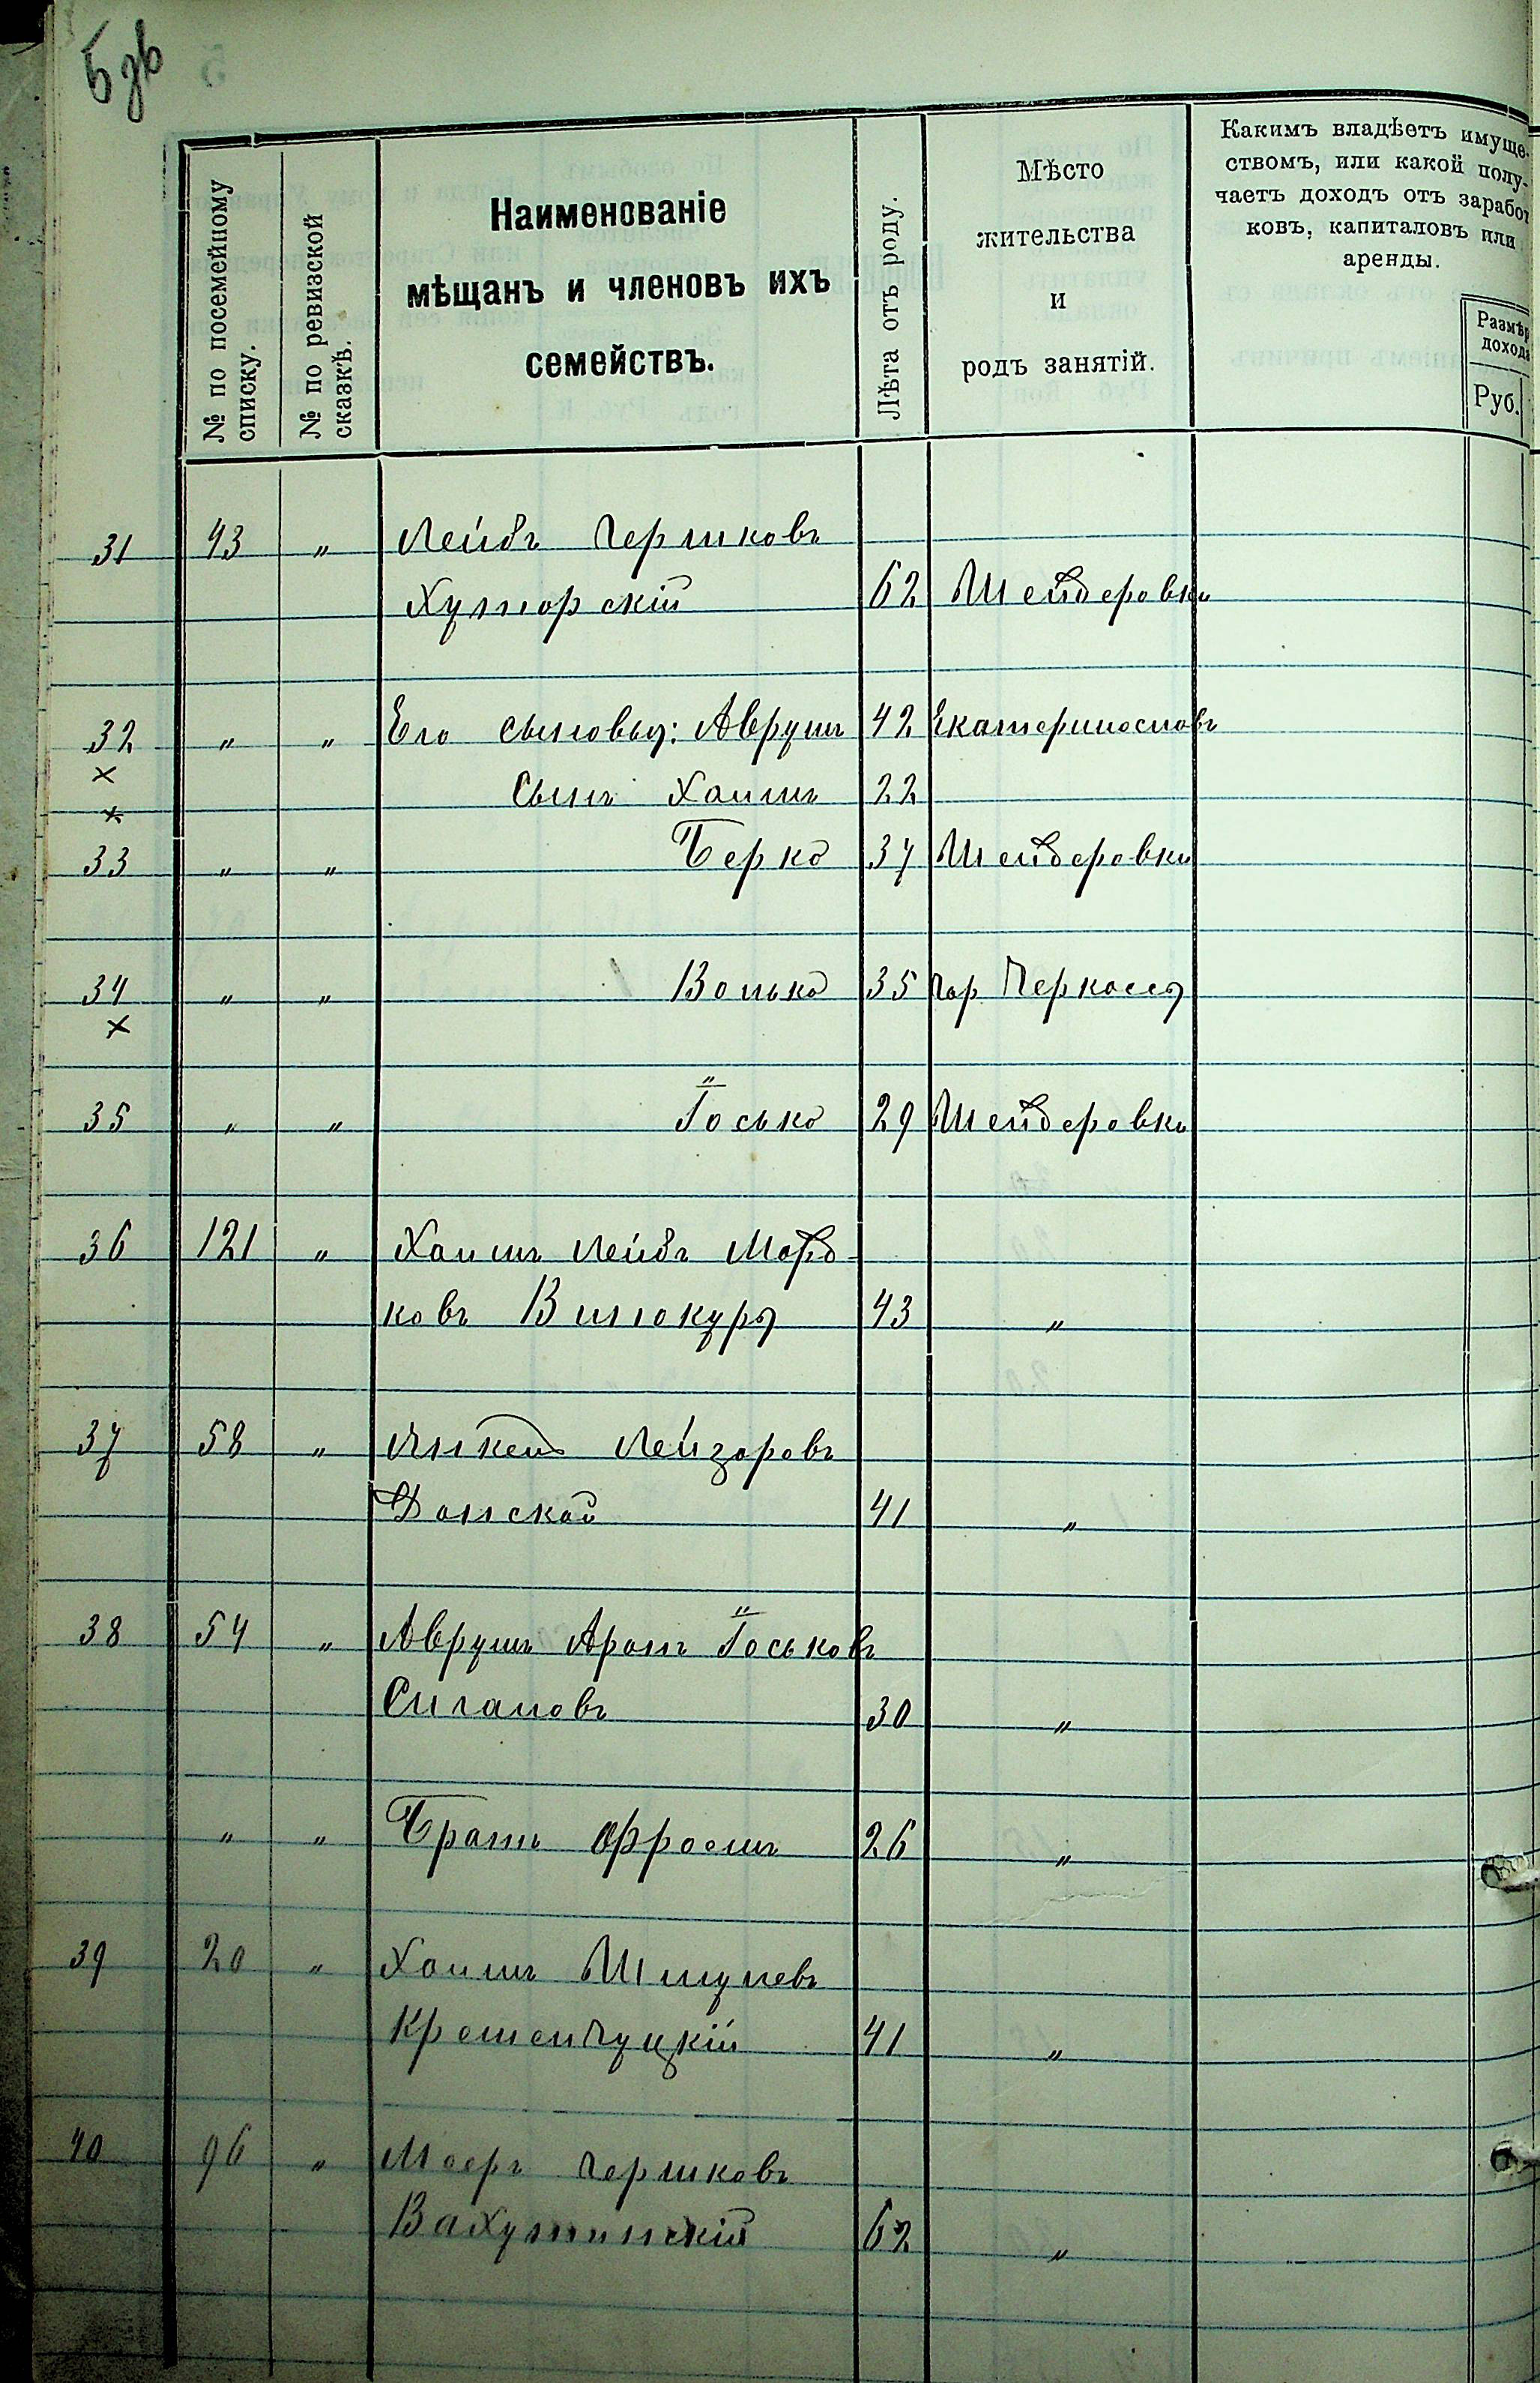 5зв
№ по посемейному списку.
№ по ревизской сказкѣ.
Наименованіе
мѣщанъ и членовъ ихъ
семействъ.
Лѣта отъ роду.
Мѣсто
жительства
и
родъ занятій.
Какимъ владѣетъ имуще-
ствомъ, или какой полу-
чаетъ доходъ отъ заработ
ковъ, капиталовъ или
аренды.
Размѣр
дохода
Руб.
31 43 " Лейбъ Гершковъ
Хуторскій 62 Шендеровка
32 " " Его сыновья: Аврумъ 42 Екатеринославъ
× Сынъ Хаимъ 22
×
33 " " Берко 37 Шендеровка
34 " " Волько 35 гор. Черкассы
×
35 " " Іосько 29 Шендеровка
36 121 " Хаимъ Лейбъ Морд-
ковъ Винокуръ 43 "
37 58 " Янкель Лейзоровъ
Донской 41 "
38 54 " Аврумъ Аронъ Іоськовъ
Сигаловъ 30 "
" " Братъ Фроимъ 26 "
39 20 " Хаимъ Шмулевъ
Кременчуцкій 41 "
40 96 " Мееръ Гершковъ
Вахутинскій 62 "